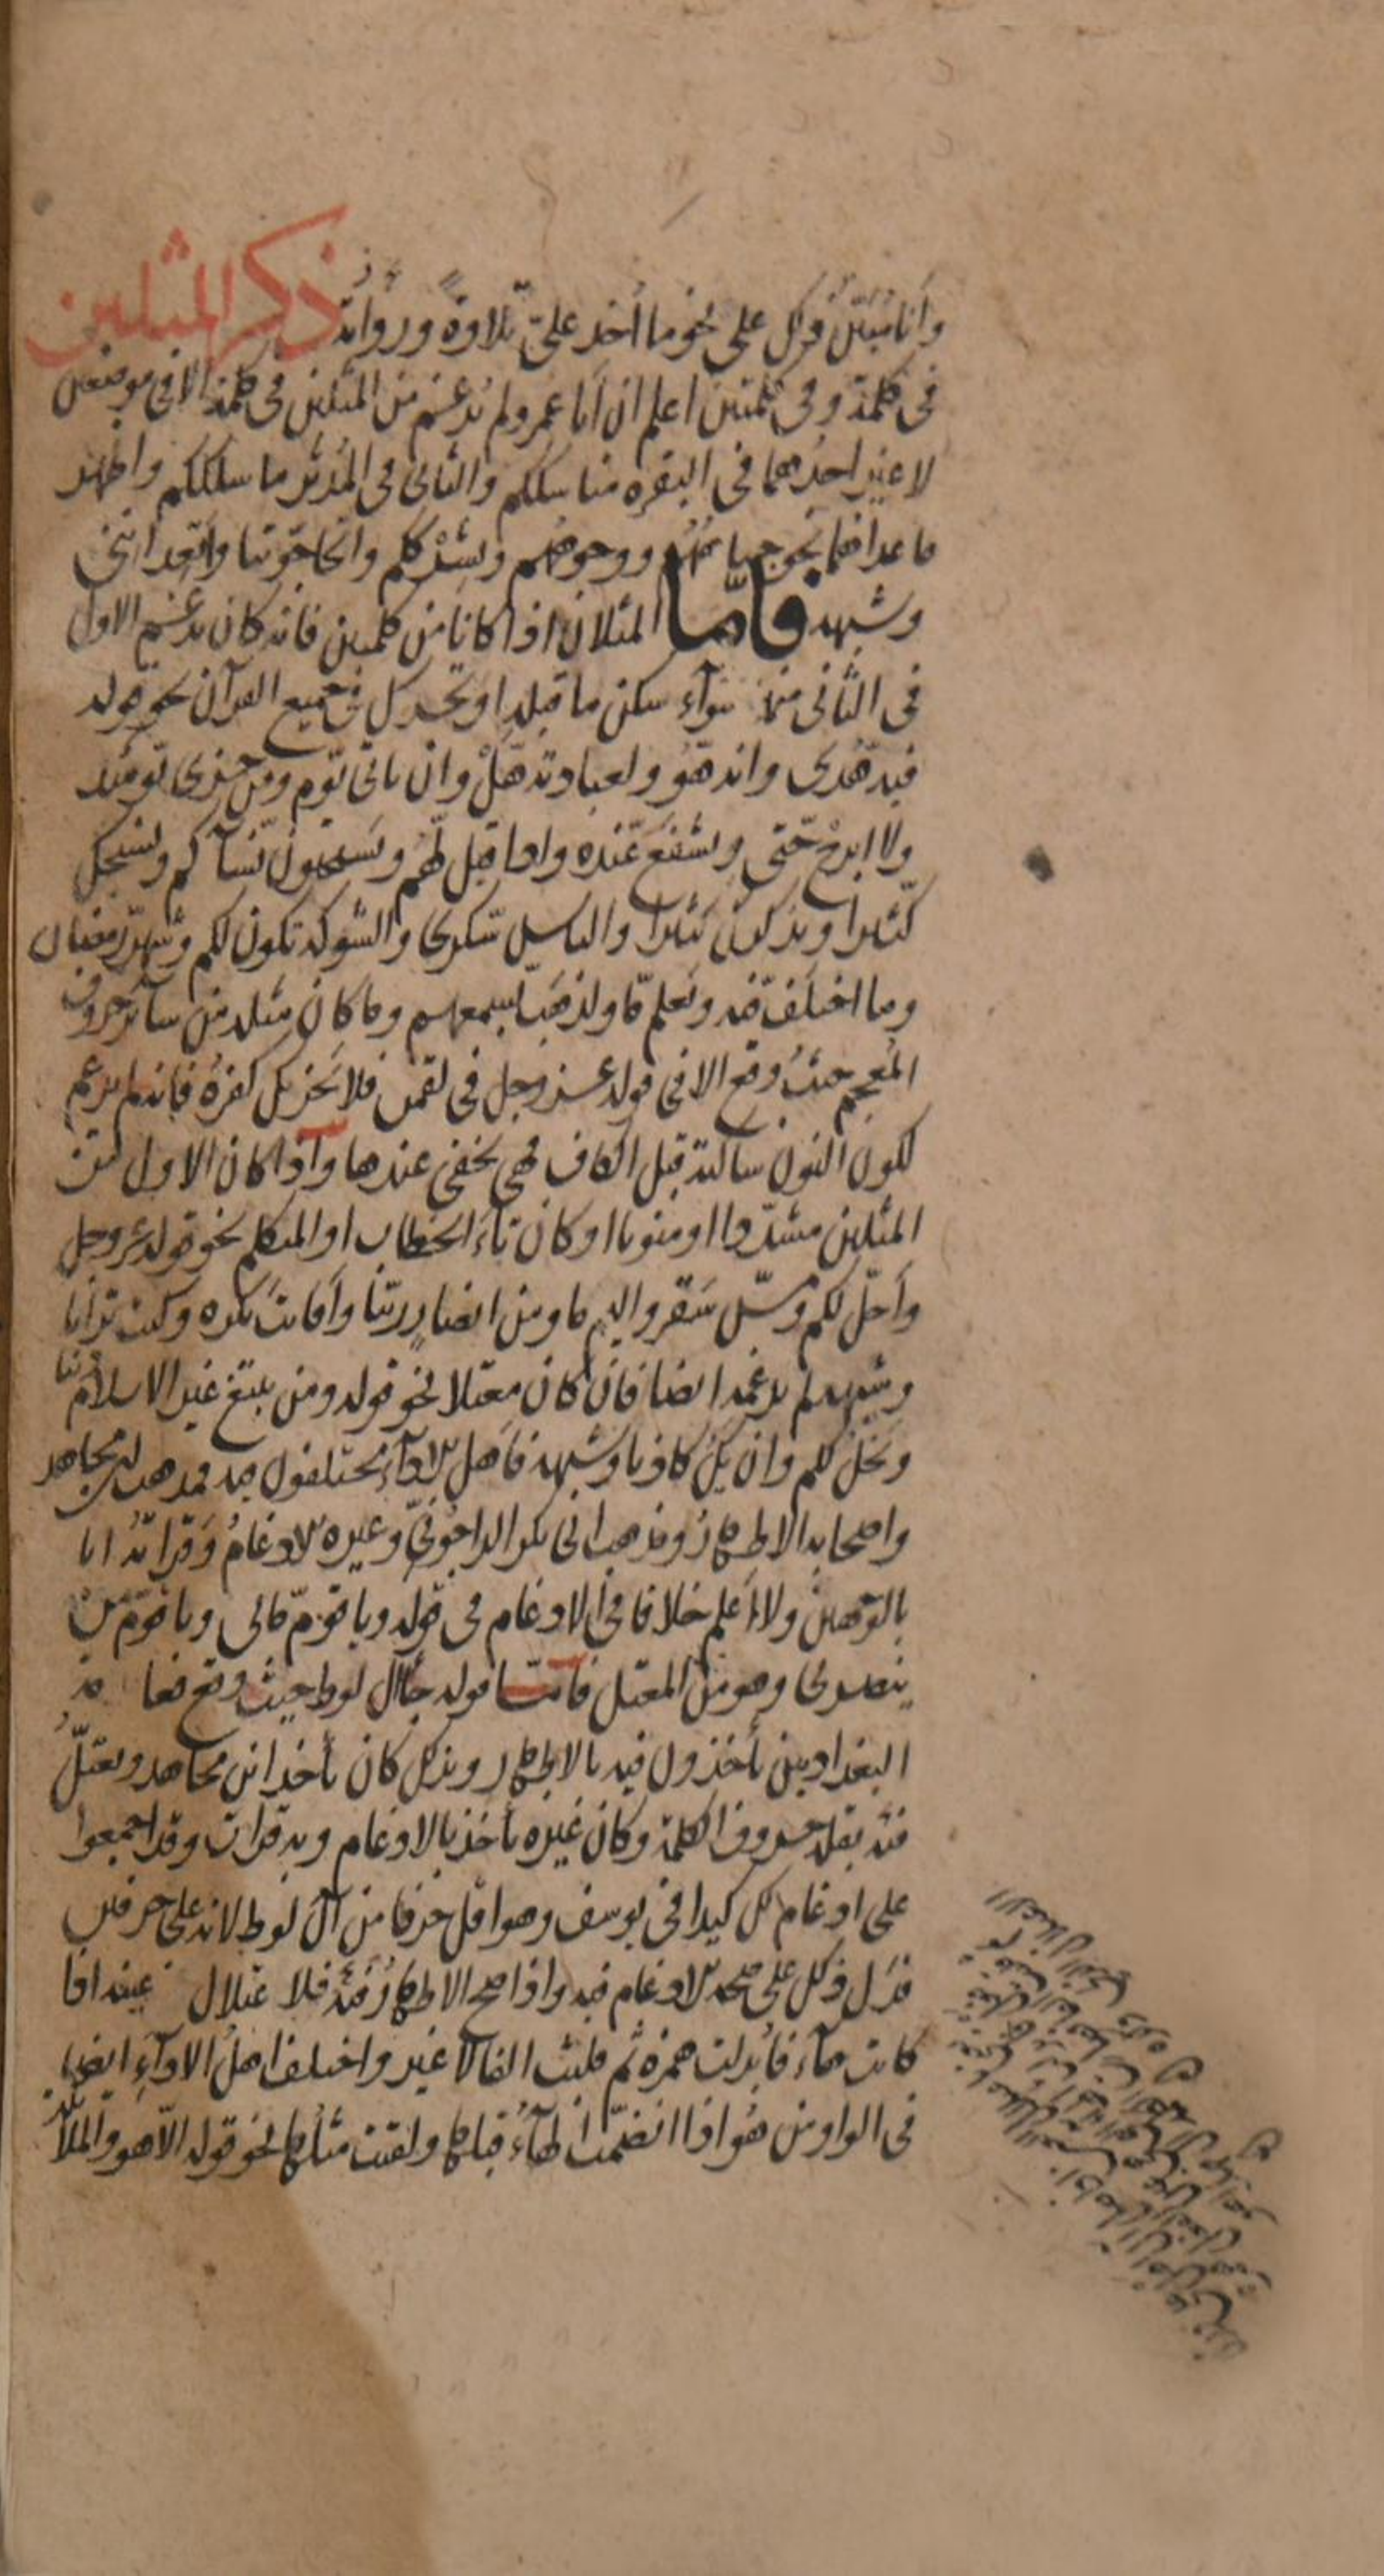 وأنا مبيّن ذلك على نحو ما أخذ علىّ تلاوةً ورواية ذكر المثلين
في كلمة وفي كلمتين اعلم ان ابا عمرو لم يدغم من المثلين في كلمة الا في موضعين
لا غير احدهما في البقره مناسككم والثاني في المدثر ما سلككم واظهر
ما عداهما نحو جباههم ووجوههم وبشرككم واتحاجوننا واتعدانني
وشبهه فامّا المثلان اذا كانا من كلمتين فانه كان يدغم الاول
في الثاني منهما سوآء سكن ما قبله او تحرك في جميع القرآن نحو قوله
فيه هّدى وانه هّو ولعبادته هّل وان ياتي يّوم ومن خزي يّومئذ
ولا ابرح حّتى ويشفع عّنده واذا قيل لّهم ويستحيون نّسآكم ونسبحك
كّثيرا ونذكرك كّثيرا والناس سّكرى والشوكة تّكون لكم وشهر رّمضان
وما اختلف فّيه ويعلم مّا ولذهب بّسمعهم وما كان مثله من سآئر حروف
المعجم حيث وقع الا في قوله عز وجل في لقمن فلا يحزنك كفره فانه لم يدغم
لكون النون ساكنة قبل الكاف فهي تخفى عندها واذا كان الاول من
المثلين مشدّدا او منونا او كان تاء الخطاب او المتكلم نحو قوله عز وجل
وأحلّ لكم ومسّ سقر واليم ما ومن انصار ربّنا وأفانت تكره وكنت ترابا
وشبهه لم يدغمه ايضا فان كان معتلا نحو قوله ومن يبتغ غير الاسلام دينا
ويخل لكم وان يك كاذبا وشبهه فاهل الادآء مختلفون فيه فمذهب ابن مجاهد
واصحابه الاظهار ومذهب ابي بكر الداجونيّ وغيره الادغام وقرأته انا
بالوجهين ولا اعلم خلافا في الادغام في قوله ويا قوم مّالي ويا قوم مّن
ينصرني وهو من المعتل فامّا قوله جال آل لوط حيث وقع فعامة
البغداديين يأخذون فيه بالاظهار وبذلك كان يأخذ ابن مجاهد ويعتلّ
فيه بقلة حروف الكلمة وكان غيره يأخذ بالادغام وبه قرأت وقد اجمعوا
على ادغام لك كيدا في يوسف وهو اقل حرفا من آل لوط لانه على حرفين
فدل ذلك على صحة الادغام فيه واذا صح الاظهار فيه فلاعتلال عينه اذا
كانت هآء فأبدلت همزه ثم قلبت الفا لا غير واختلف اهل الادآء ايضا
في الواو من هو اذا انضمت الهآء قبلها ولقيت مثلها نحو قوله الّا هو والملائكة